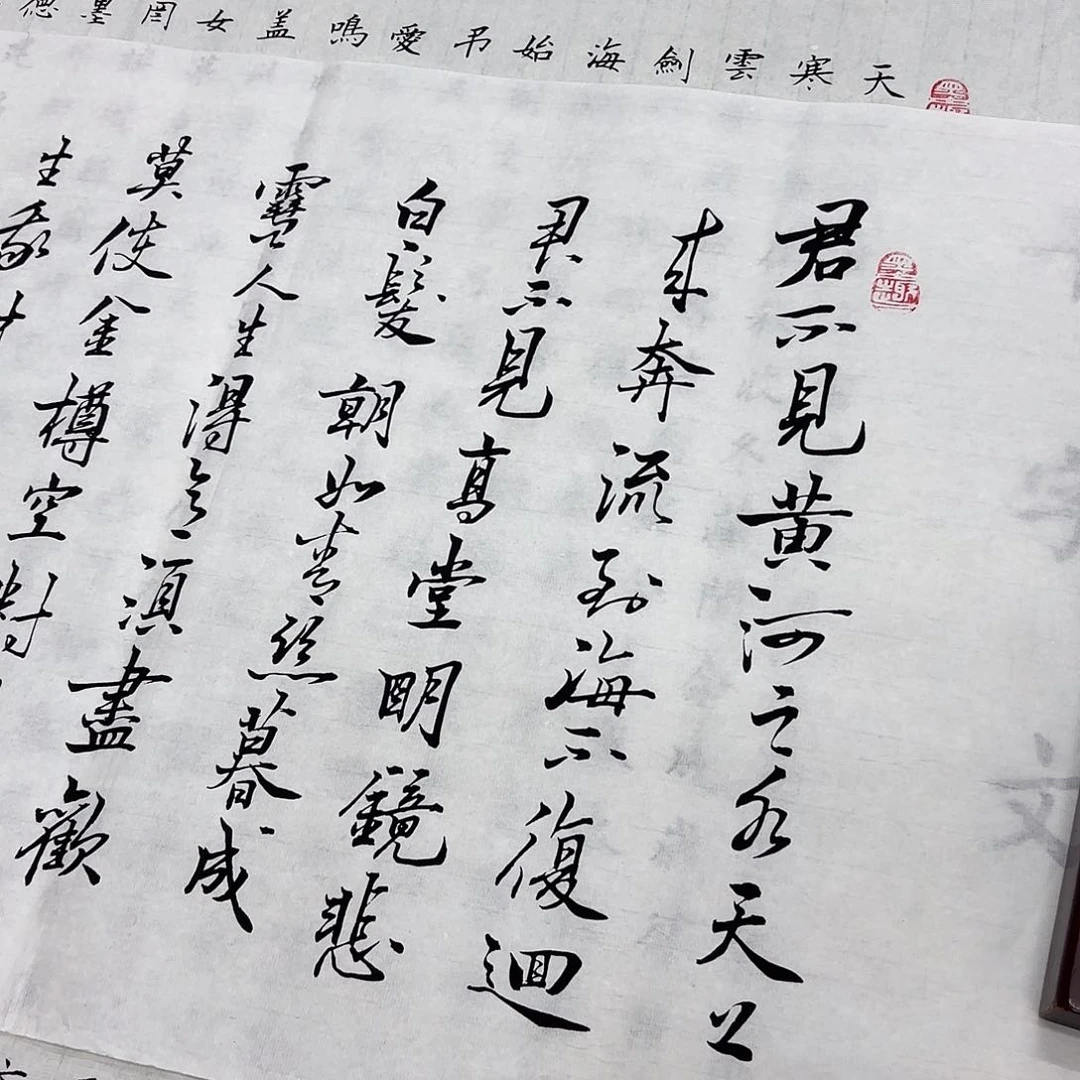 天寒雲劍海始弔愛鳴盖女罔墨德
君不見黄河之水天上
来奔流到海不復迴
君不見高堂明鏡悲
白髮朝如青丝暮成
雪人生得意須盡歡
莫使金樽空對
生我材